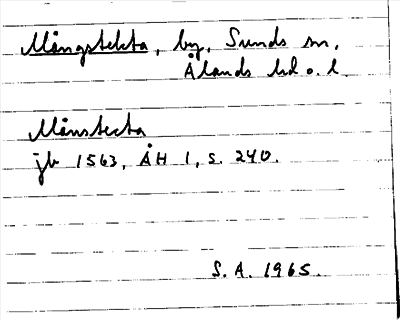 Mångstekta, by, Sunds sn,
Ålands hd o. l.
Månstecta
jb 1563, ÅH 1, s. 240.
S. A. 1965.